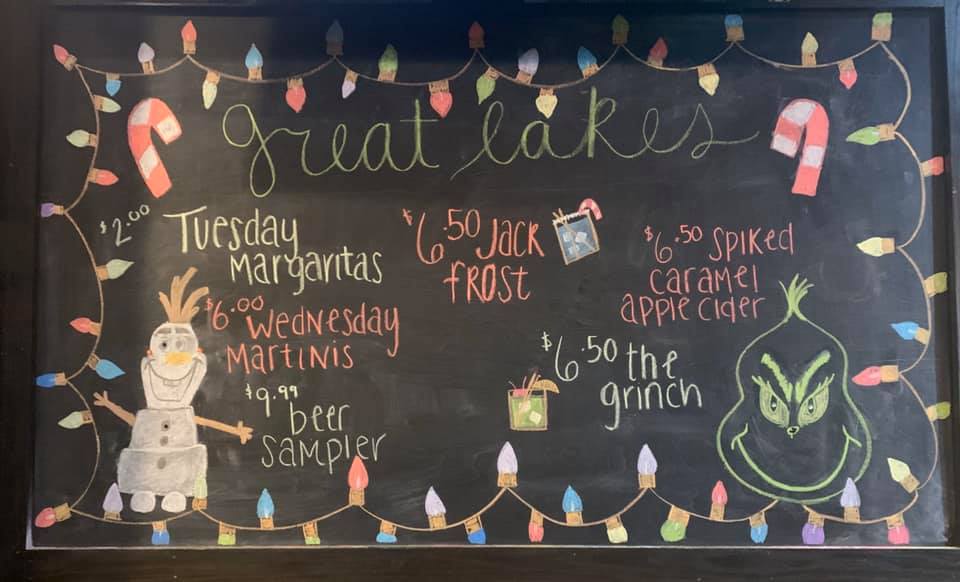 great lakes
$2.00 Tuesday
Margaritas
$6.00 Wednesday
Martinis
$9.99
beer
sampler
$6.50 Jack
frost
$6.50 spiked
caramel
apple cider
$6.50 the
grinch